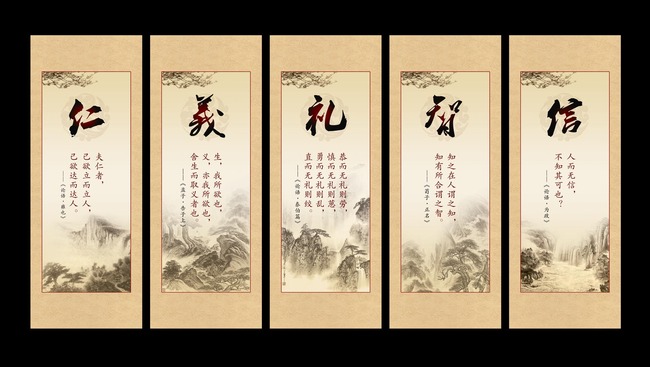 仁
夫仁者，
己欲立而立人，
己欲达而达人。
——《论语·雍也》
義
生，我所欲也，
义，亦我所欲也，
舍生而取义者也。
——《孟子·告子上》
礼
恭而无礼则劳，
慎而无礼则葸，
勇而无礼则乱，
直而无礼则绞。
——《论语·泰伯篇》
智
知之在人谓之知，
知有所合谓之智。
——《荀子·正名》
信
人而无信，
不知其可也？
——《论语·为政》